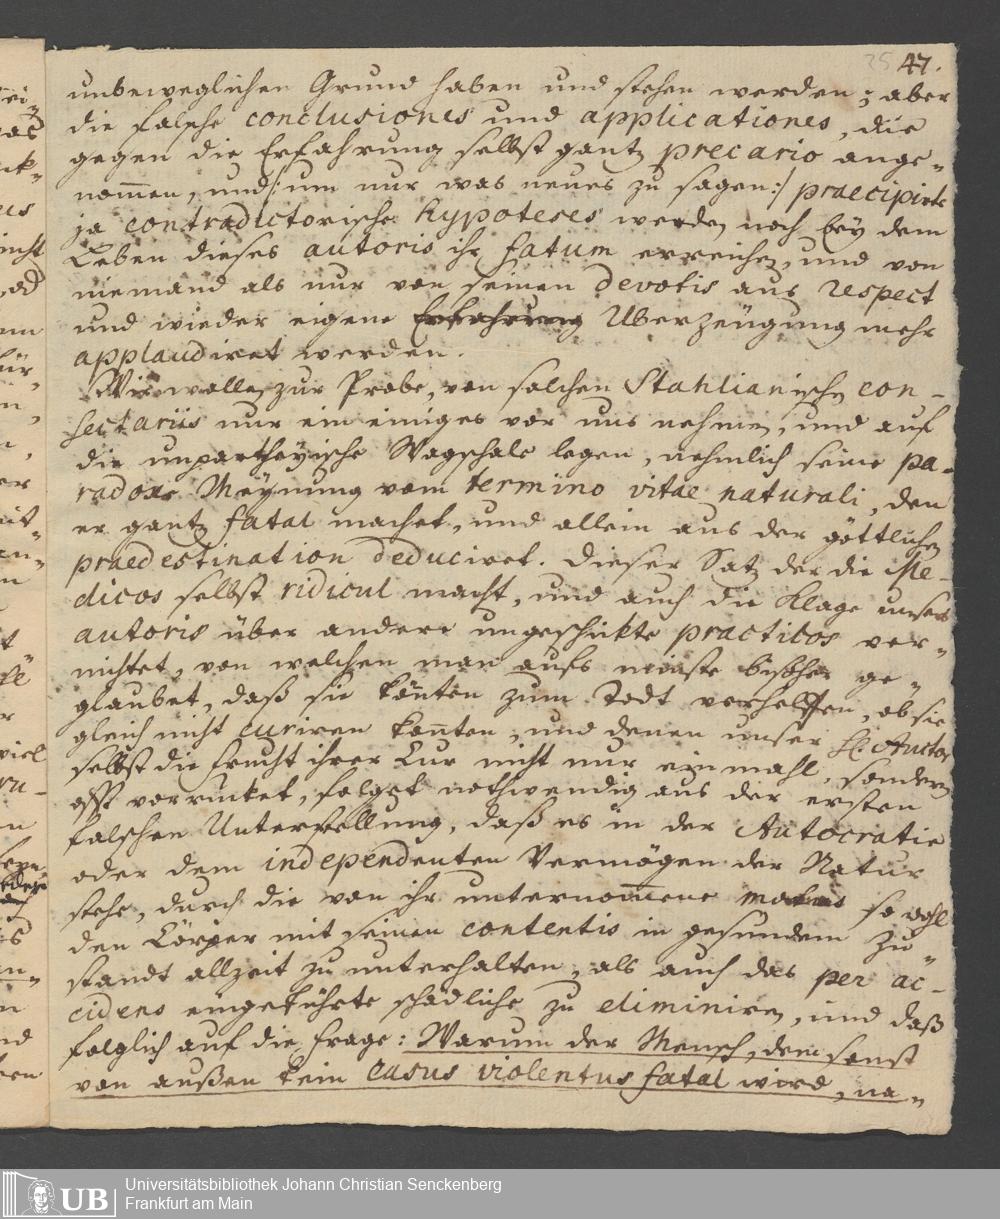 35 47.
unbeweglichen Grund haben und stehen werden; aber
die falsche conclusiones und applicationes, die
gegen die Erfahrung selbst gantz precario ange„
nom̅en, und /: um nur was neues zu sagen :/ praecipirte
ja contradictorische hypoteses werden noch bey dem
Leben dieses autoris ihr fatum erreichen, und von
niemand als nur von seinen devotis aus respect
und wieder eigene Erfahrung Uberzeügung mehr
applaudiret werden.
Wir wollen zur Probe, von solchen Stahlianischen con„
sectariis nur ein einiges vor uns nehmen, und auf
die unpartheyische Wagschale legen, nehmlich seine pa„
radoxe Meynung vom termino vitae naturali, den
er gantz fatal machet, und allein aus der göttlichen
praedestination deduciret. Dieser Satz der die Me„
dicos selbst ridicul macht, und auch die Klage unsers
autoris über andere ungeschickte practicos ver„
nichtet, von welchen man aufs minste bishher ge„
glaubet, daß sie kön̅ten zum Todt verhelffen, ob sie
gleich nicht curiren kon̅ten, und denen unser H. Auctor
selbst die frucht ihrer Cur nicht nur einmahl, sondern
offt vorrücket, folget nothwendig aus der ersten
falschen Unterstellung, daß es in der Autocratie
oder dem independenten Vermögen der Natur
stehe, durch die von ihr unternom̅ene motus so wohl
den Cörper mit seinen contentis in gesundem Zu„
standt allzeit zu unterhalten, als auch das per ac„
cidens eingeführte schädliche zu eliminiren, und daß
folglich auf die frage: Warum der Mensch, dem sonst
von außen kein casus violentus fatal wird, na„
UB
Universitätsbibliothek Johann Christian Senckenberg
Frankfurt am Main